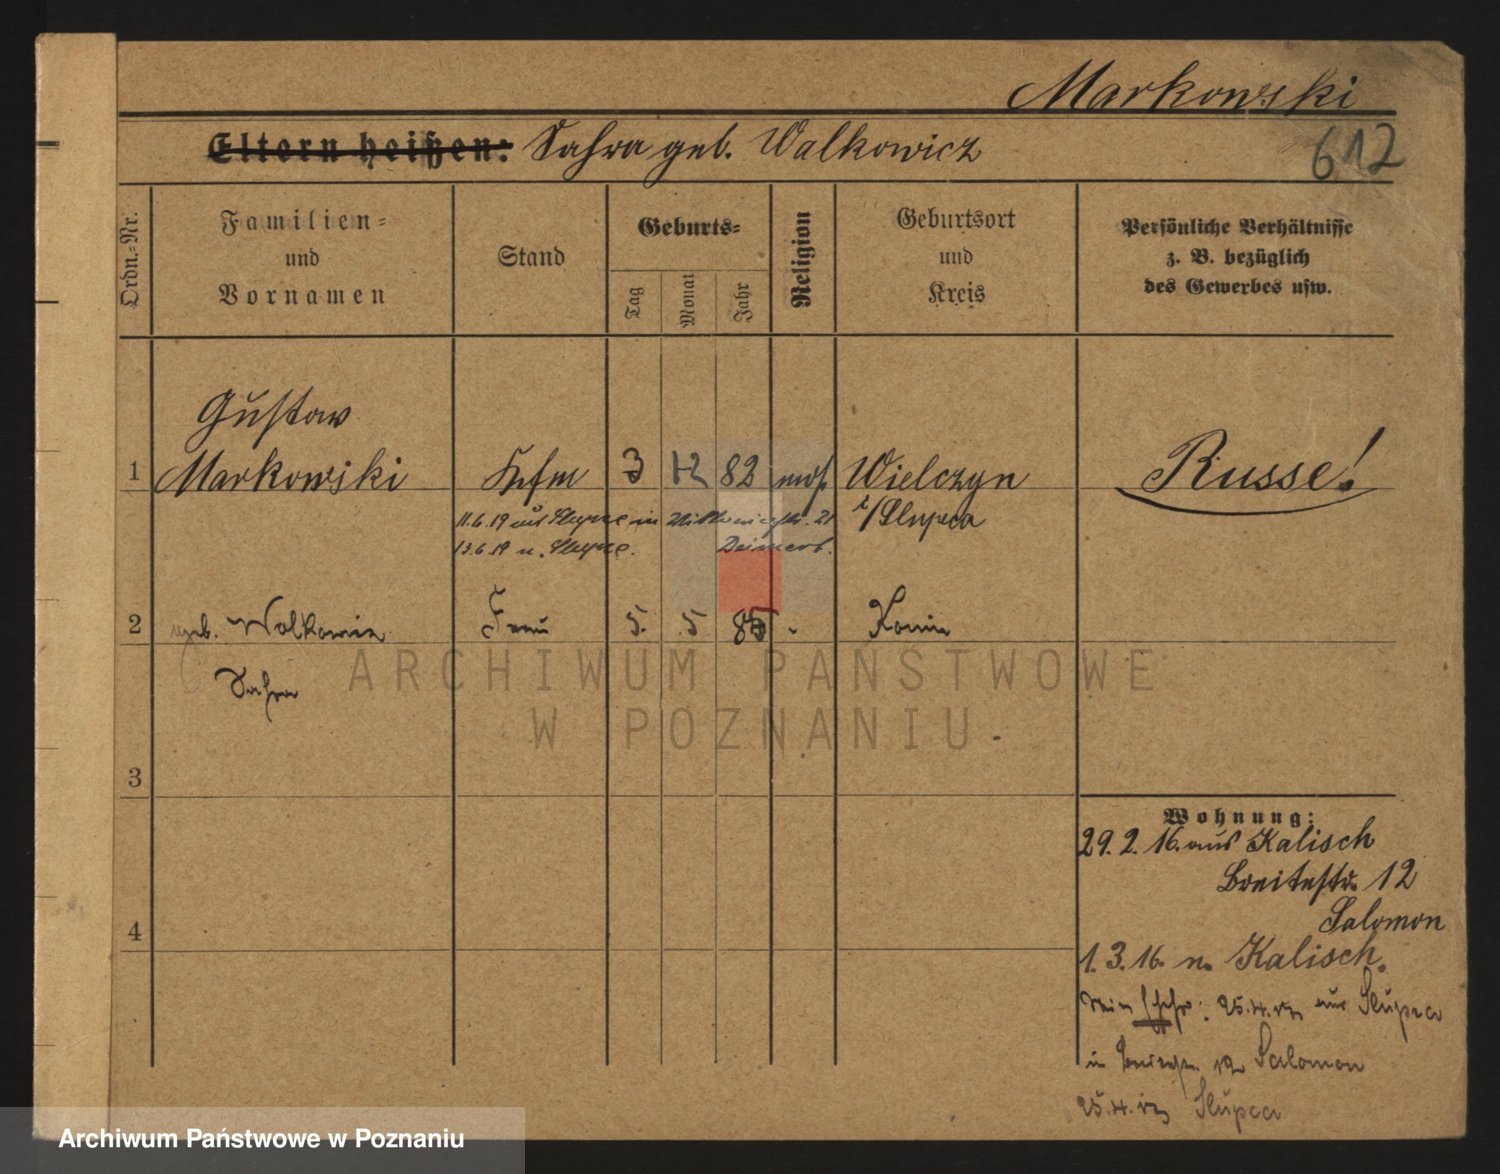 Markowski
Eltern heißen: Sahra geb. Walkowicz
612
Ordn.-Nr.
Familien-
und
Vornamen
Stand
Geburts-
Tag
Monat
Jahr
Religion
Geburtsort
und
Kreis
Persönliche Verhältnisse
z. B. bezüglich
des Gewerbes usw.
Gustaw
1 Markowski Kfm 3 12 82 mos. Wielczyn Russe!
i/Slupca
11.6.19 aus Slupce in 21
13.6.19 n. Slupce.
2 geb. Walkowicz Frau 5. 5 85 Konin
Sahra
ARCHIWUM PAŃSTWOWE
W POZNANIU
3
Wohnung:
29. 2. 16. aus Kalisch
Breitestr. 12
Salomon
4
1. 3. 16. n. Kalisch.
25.4. aus Slupca
in 12 Salomon
25.4. Slupca
Archiwum Państwowe w Poznaniu